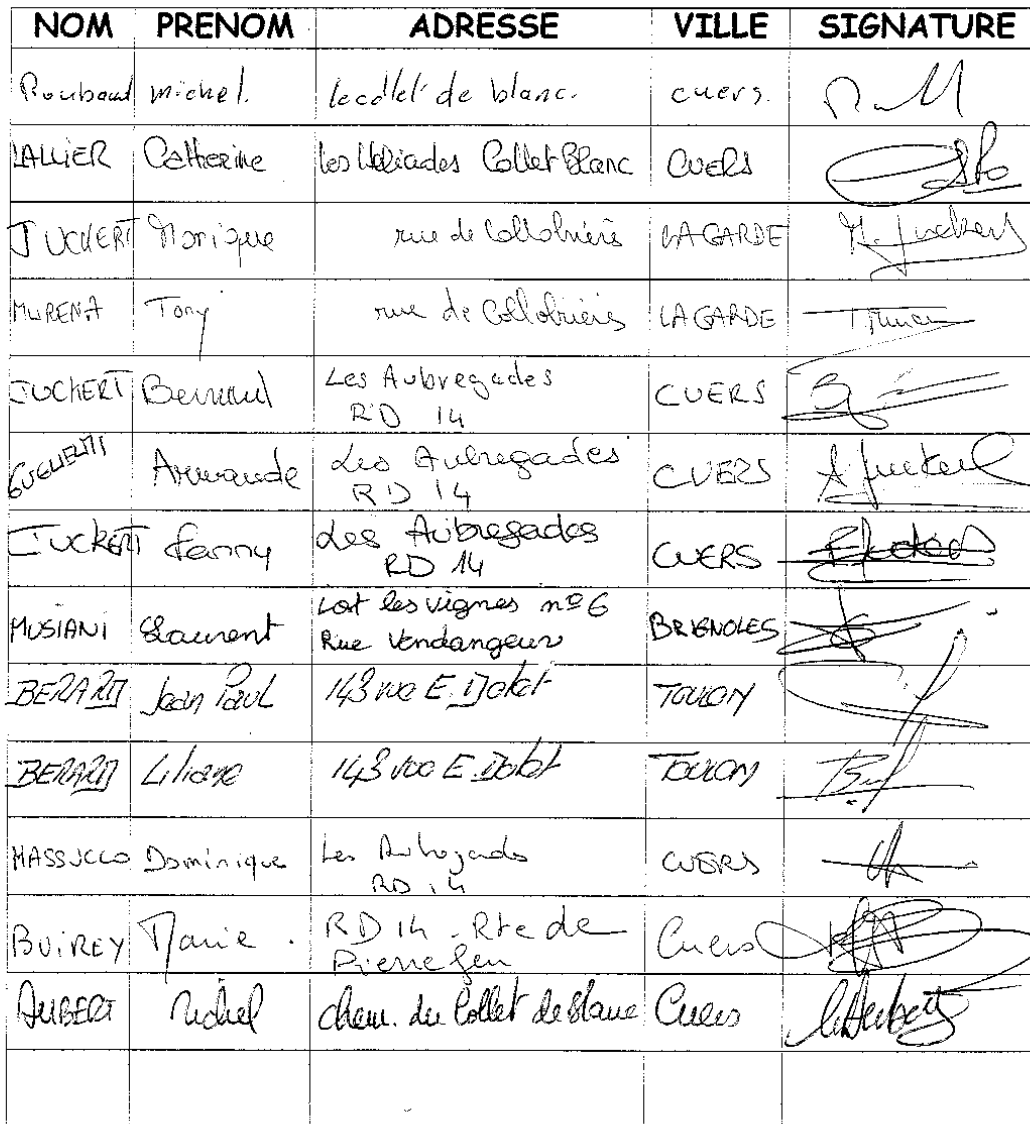 NOM PRENOM ADRESSE VILLE SIGNATURE
Roubaud michel. le collet de blanc. cuers.
LALLIER Catherine les Héliades Collet Blanc CUERS
JUCKERT Monique rue de Collobrières LA GARDE M. Juckert
MURENA Tony rue de Collobrières LA GARDE
JUCKERT Bernard Les Aubregades CUERS
RD 14
GUGLIELMI Armande Les Aubregades CUERS A Juckert
RD 14
JUCKERT Fanny Les Aubregades CUERS
RD 14
MUSIANI Laurent Lot les vignes nº 6 BRIGNOLES
Rue Vendangeur
BERARD Jean Paul 143 rue E. Dolet TOULON
BERARD Liliane 143 rue E. Dolet TOULON
MASSUCCO Dominique Les Aubregades CUERS
RD 14
BUIREY Marie. RD 14 - Rte de Cuers
Pierrefeu
AUBERT Michel chem. du Collet de Blanc Cuers